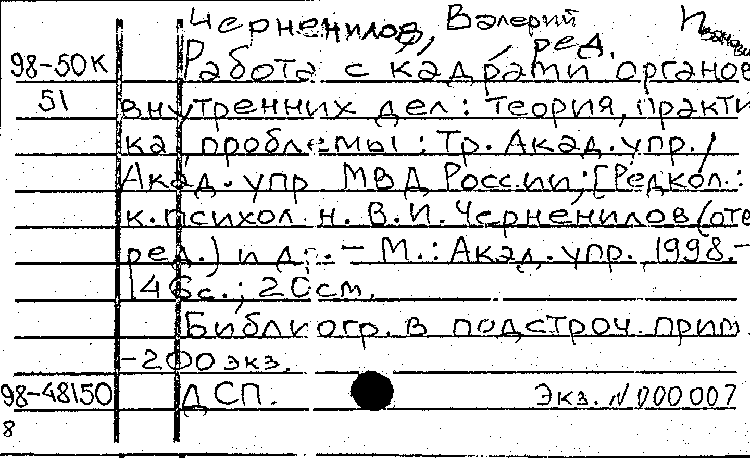 Черненилов, Валерий Иванови
ред.
98-50к Работа с кадрами органов
51 внутренних дел: теория, практи
ка, проблемы: Тр. Акад. упр. /
Акад. упр МВД России; [Редкол.:
к. психол. н. В. И. Черненилов (отв
ред.) и др. - М.: Акад. упр., 1998.-
146с.; 20см.
Библиогр. в подстроч. прим.
-200 экз.
98-48150 ДСП. Экз. N 000007
8